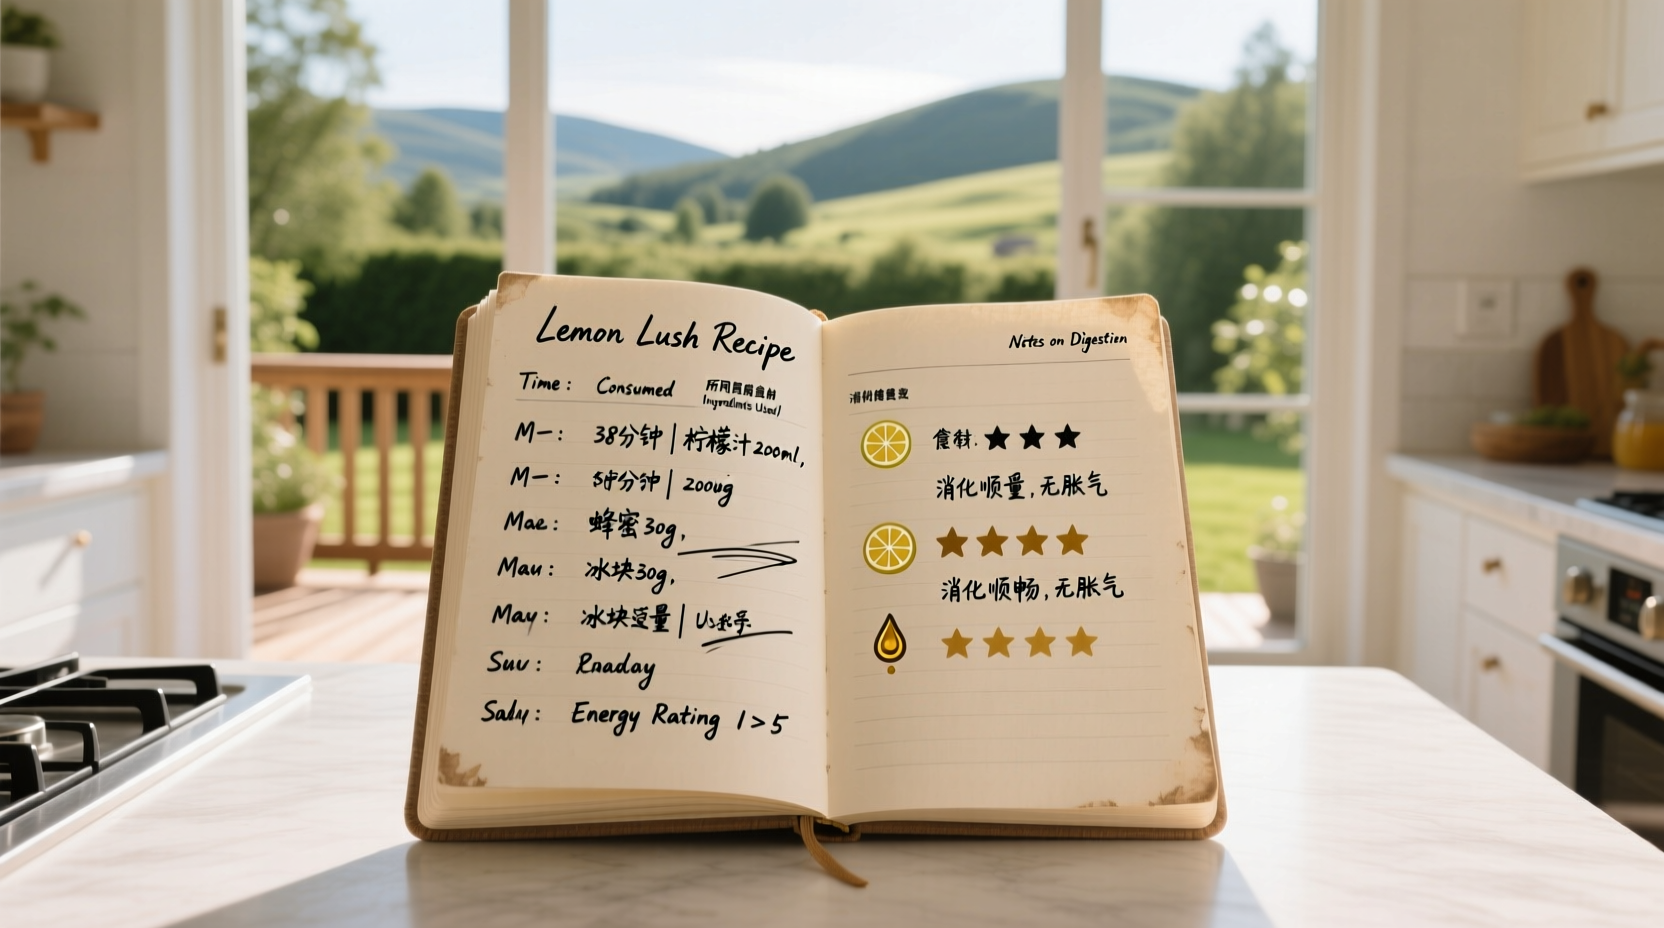 Lemon Lush Recipe
Time: Consumed
M一: 38分钟 | 柠檬汁200ml,
M一: 分钟 | 200ug
Mae: 蜂蜜30g,
Mau: 冰块30g,
May: 冰块量 |
Suv: Rnaday
Saly: Energy Rating 1>5
Notes on Digestien
消化顺量,无胀气
消化顺畅,无胀气